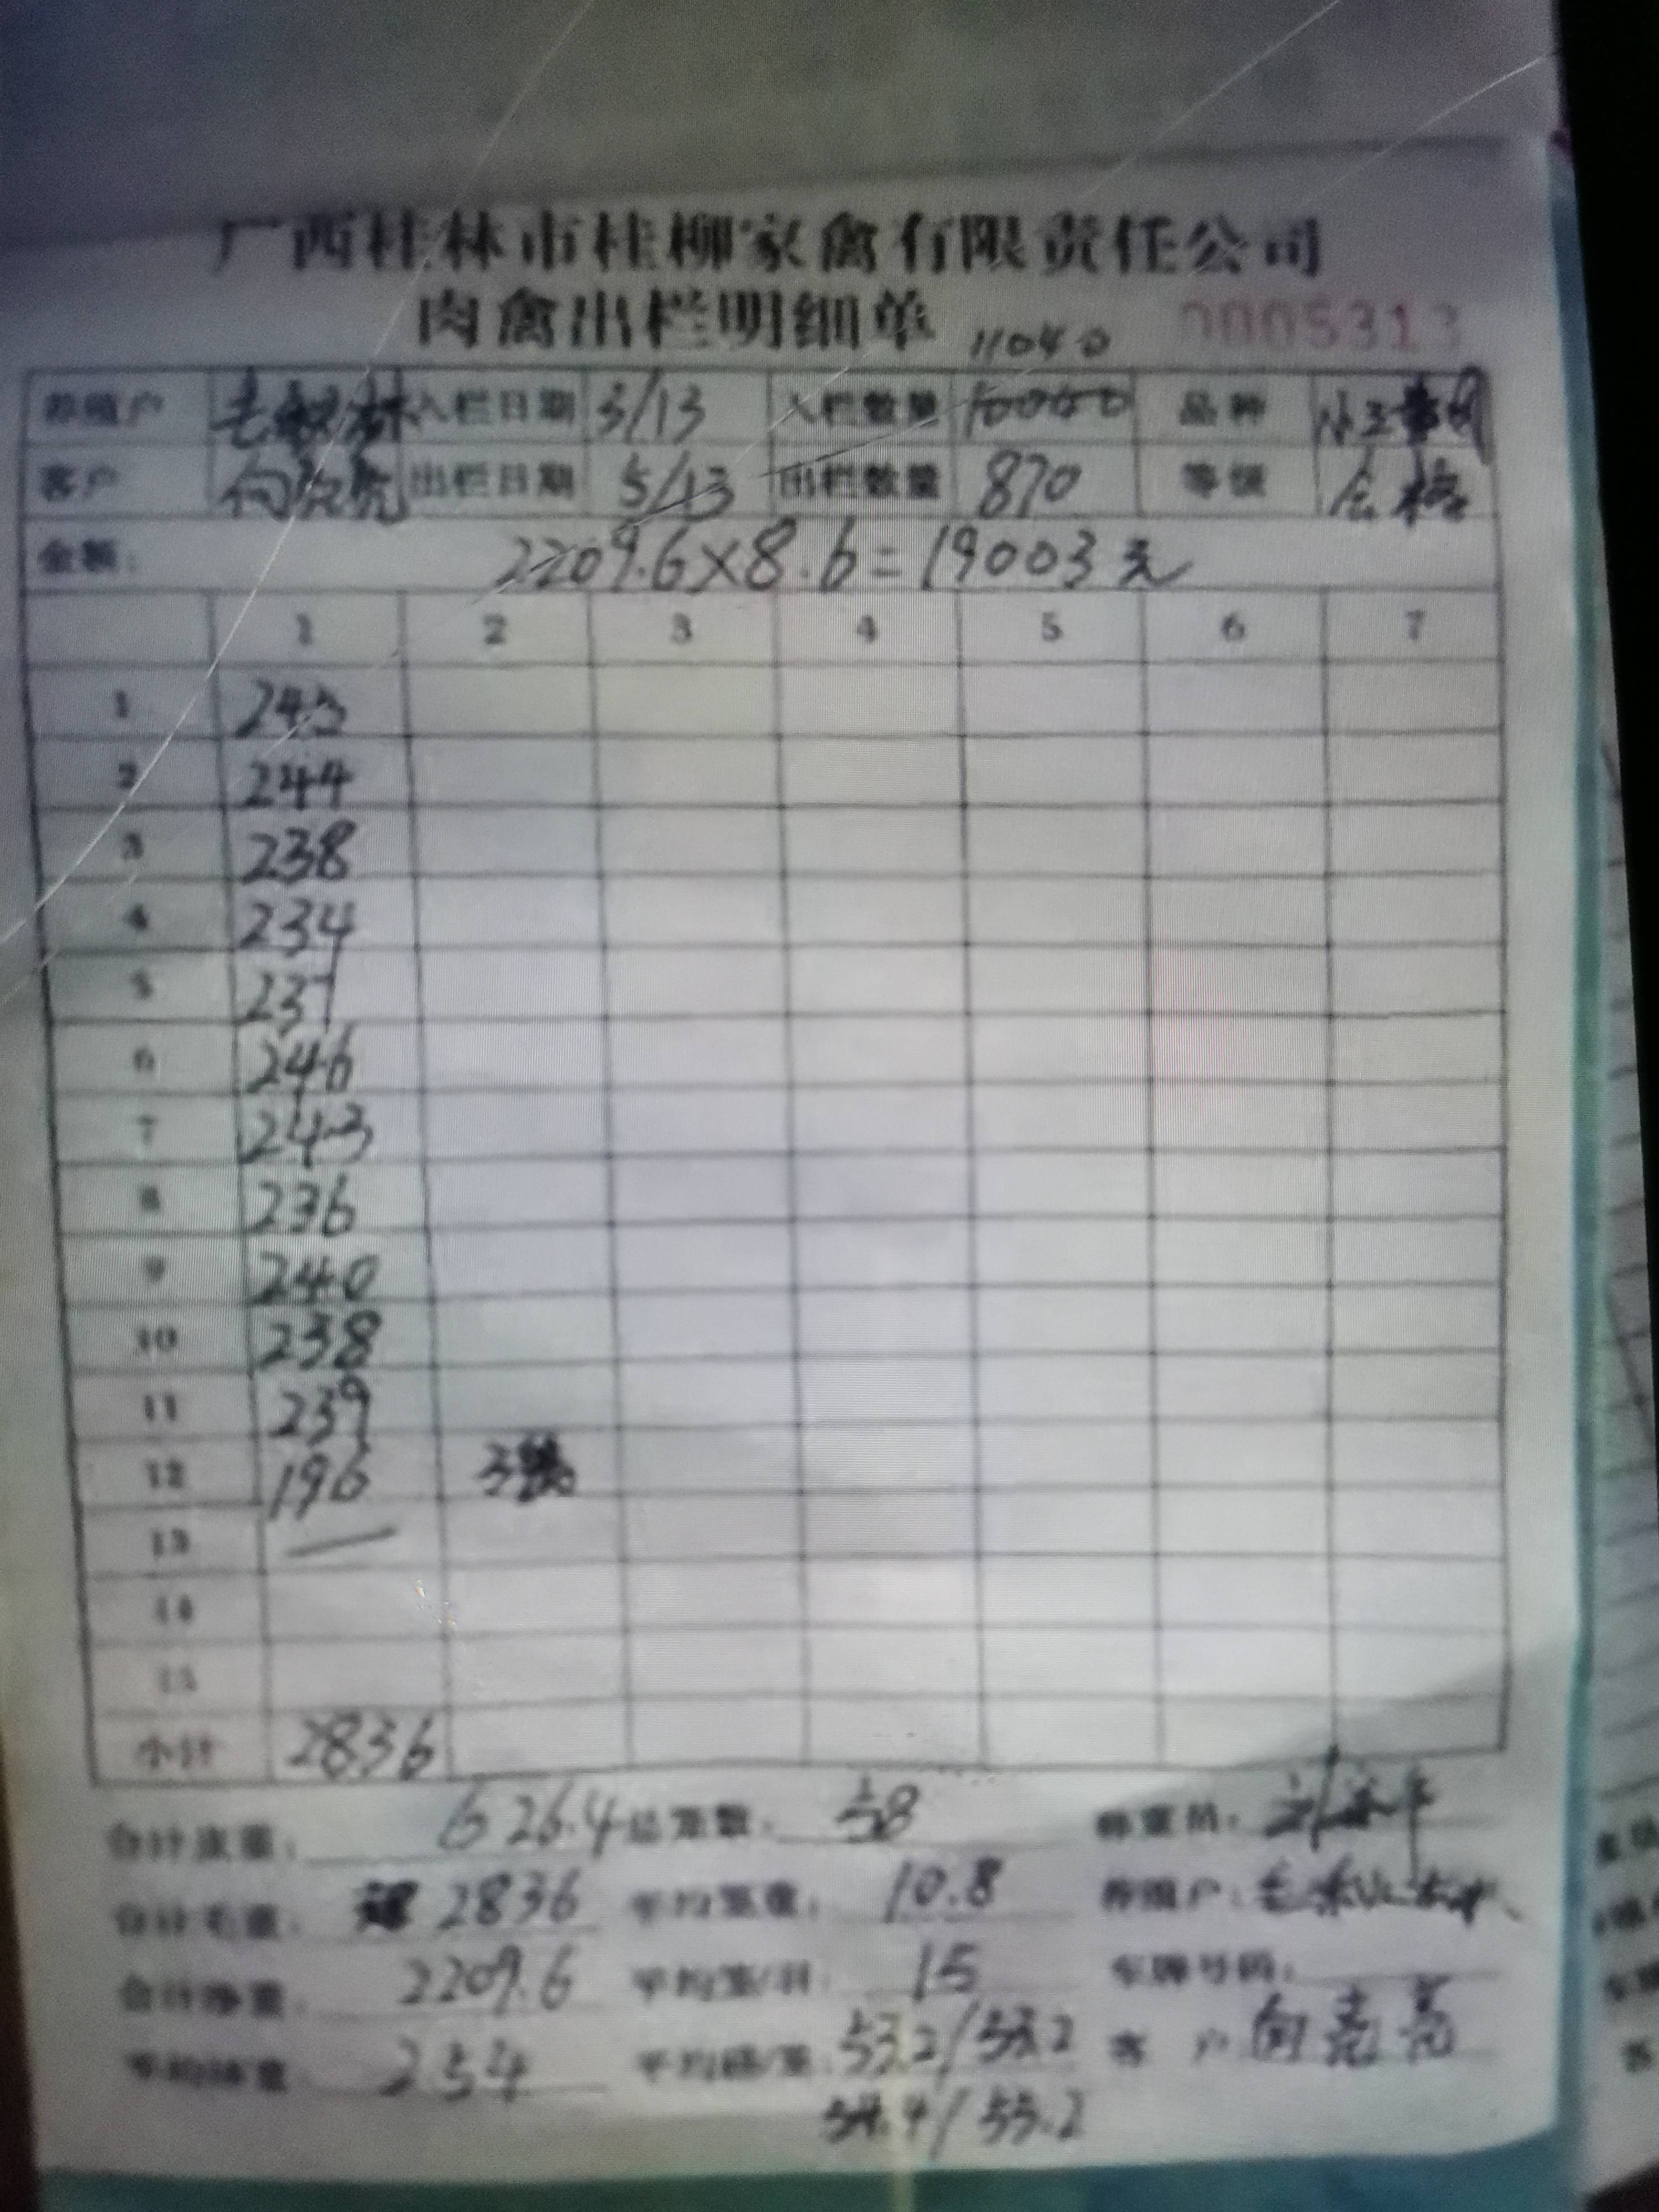 广西桂林市桂柳家禽有限责任公司
肉禽出栏明细单 0005313
11040
养殖户 入栏日期 3/13 入栏数量 品种
客户 出栏日期 5/13 出栏数量 870 等级 合格
金额: 2209.6×8.6=19003元
1 2 3 4 5 6 7
1 245
2 244
3 238
4 234
5 237
6 246
7 243
8 236
9 240
10 238
11 239
12 196
13 —
14
15
小计 2836
合计皮重: 626.4 总笼数: 58 称重员:
合计毛重: 2836 平均笼重: 10.8 养殖户:
合计净重: 2209.6 平均笼/羽: 15 车牌号码:
平均体重: 2.54 53.2/53.2 客户 向亮亮
54.4/55.2